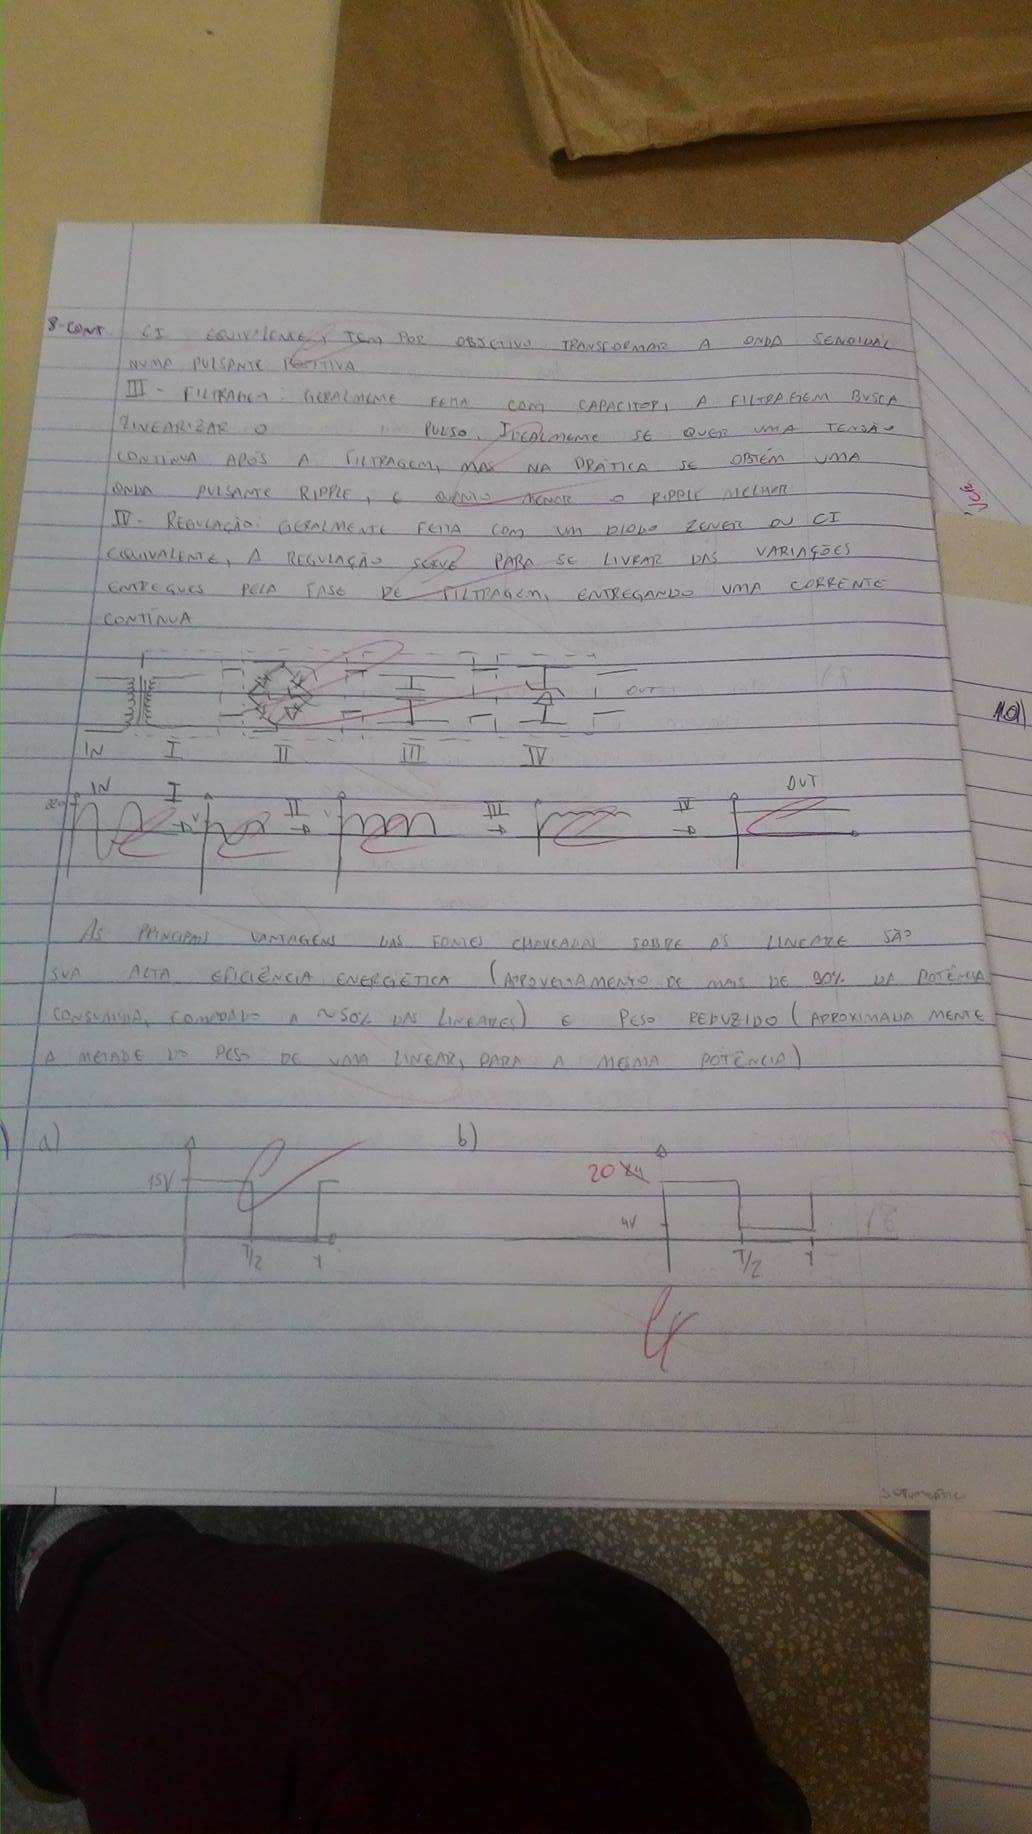 8-CONT CI EQUIVALENTE, TEM POR OBJETIVO TRANSFORMAR A ONDA SENOIDAL
NUMA PULSANTE POSITIVA
III - FILTRAGEM: GERALMENTE FEITA COM CAPACITOR, A FILTRAGEM BUSCA
LINEARIZAR O PULSO. IDEALMENTE SE QUER UMA TENSÃO
CONTINUA APÓS A FILTRAGEM, MAS NA PRÁTICA SE OBTÉM UMA
ONDA PULSANTE RIPPLE, E QUANTO MENOR O RIPPLE MELHOR
IV - REGULAÇÃO: GERALMENTE FEITA COM UM DIODO ZENER OU CI
EQUIVALENTE, A REGULAÇÃO SERVE PARA SE LIVRAR DAS VARIAÇÕES
ENTREGUES PELA FASE DE FILTRAGEM, ENTREGANDO UMA CORRENTE
CONTÍNUA
OUT
IN I II III IV
IN I II III IV OUT
AS PRINCIPAIS VANTAGENS DAS FONTES CHAVEADAS SOBRE AS LINEARE SÃO
SUA ALTA EFICIÊNCIA ENERGÉTICA (APROVEITAMENTO DE MAIS DE 90% DA POTÊNCIA
CONSUMIDA, COMPARADO A ~50% DAS LINEARES) E PESO REDUZIDO (APROXIMADA MENTE
A METADE DO PESO DE UMA LINEAR, PARA A MESMA POTÊNCIA)
a) b)
15V 20
4V
T/2 T T/2 T
VCE
10)